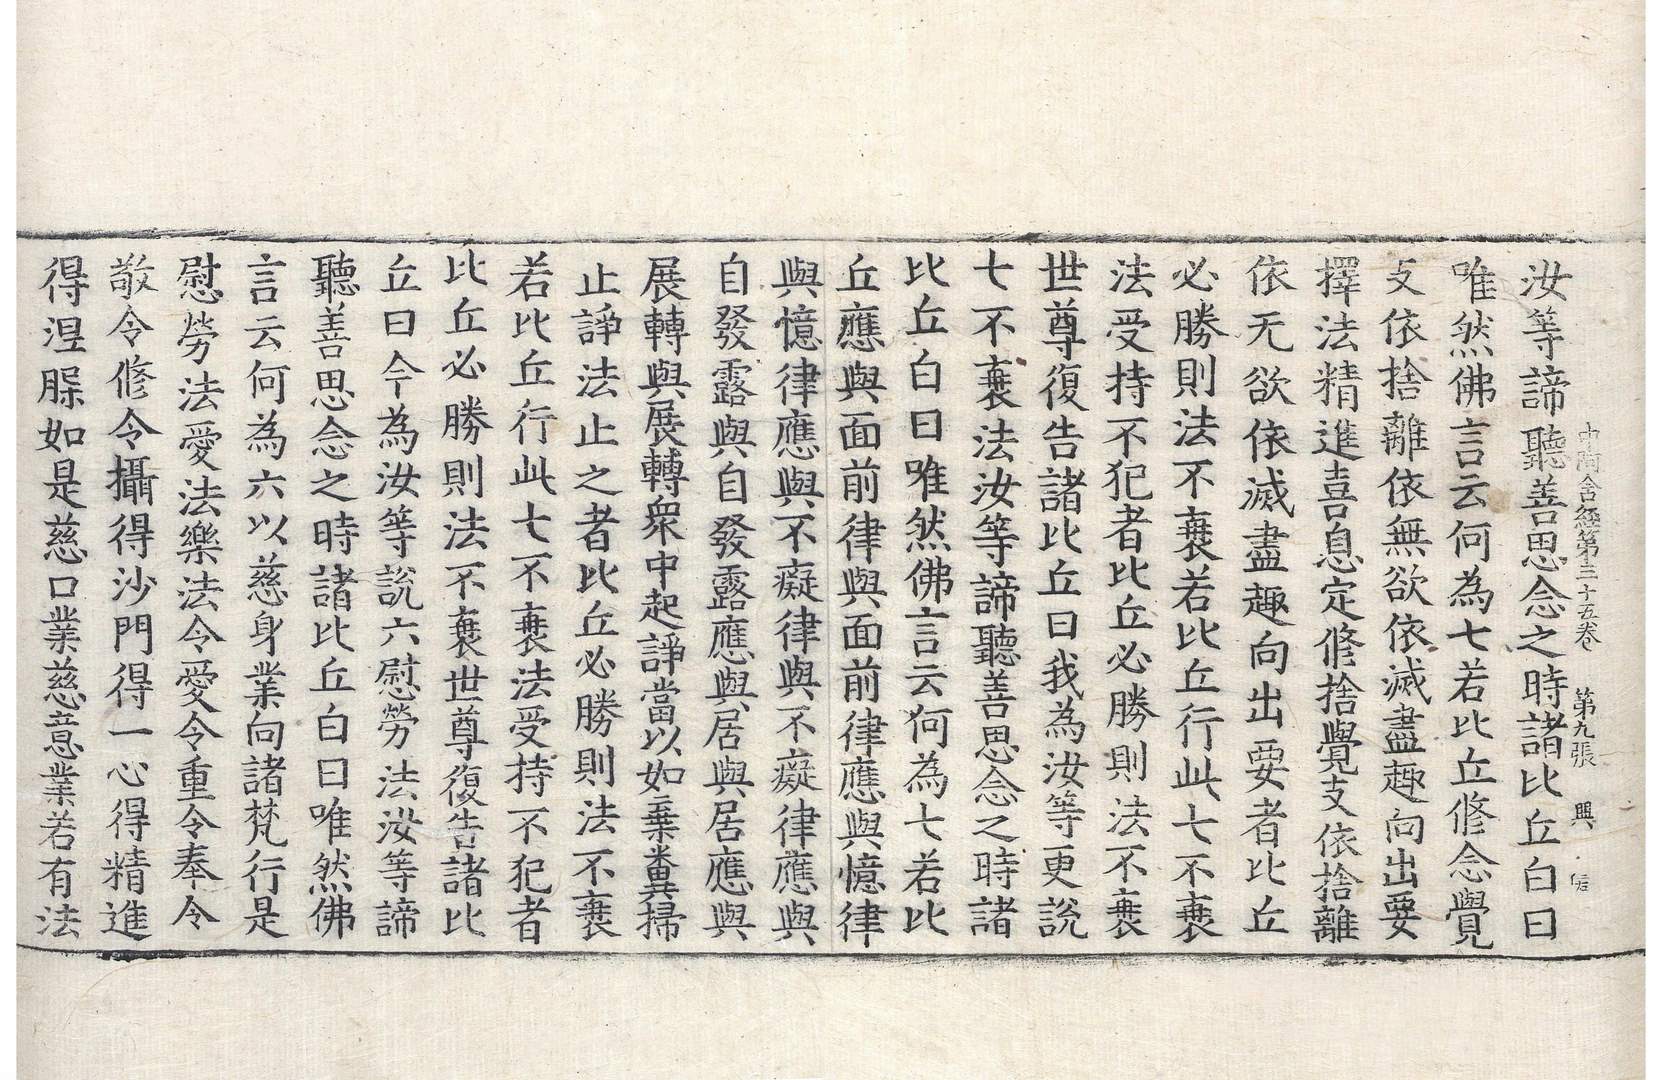 中阿含經第三十五卷 第九張 興 信
汝等諦聽善思念之時諸比丘白曰
唯然佛言云何為七若比丘修念覺
支依捨離依無欲依滅盡趣向出要
擇法精進喜息定修捨覺支依捨離
依无欲依滅盡趣向出要者比丘
必勝則法不衰若比丘行此七不衰
法受持不犯者比丘必勝則法不衰
世尊復告諸比丘曰我為汝等更說
七不衰法汝等諦聽善思念之時諸
比丘白曰唯然佛言云何為七若比
丘應與面前律與面前律應與憶律
與憶律應與不癡律與不癡律應與
自發露與自發露應與居與居應與
展轉與展轉衆中起諍當以如棄糞掃
止諍法止之者比丘必勝則法不衰
若比丘行此七不衰法受持不犯者
比丘必勝則法不衰世尊復告諸比
丘曰今為汝等說六慰勞法汝等諦
聽善思念之時諸比丘白曰唯然佛
言云何為六以慈身業向諸梵行是
慰勞法愛法樂法令愛令重令奉令
敬令修令攝得沙門得一心得精進
得涅槃如是慈口業慈意業若有法